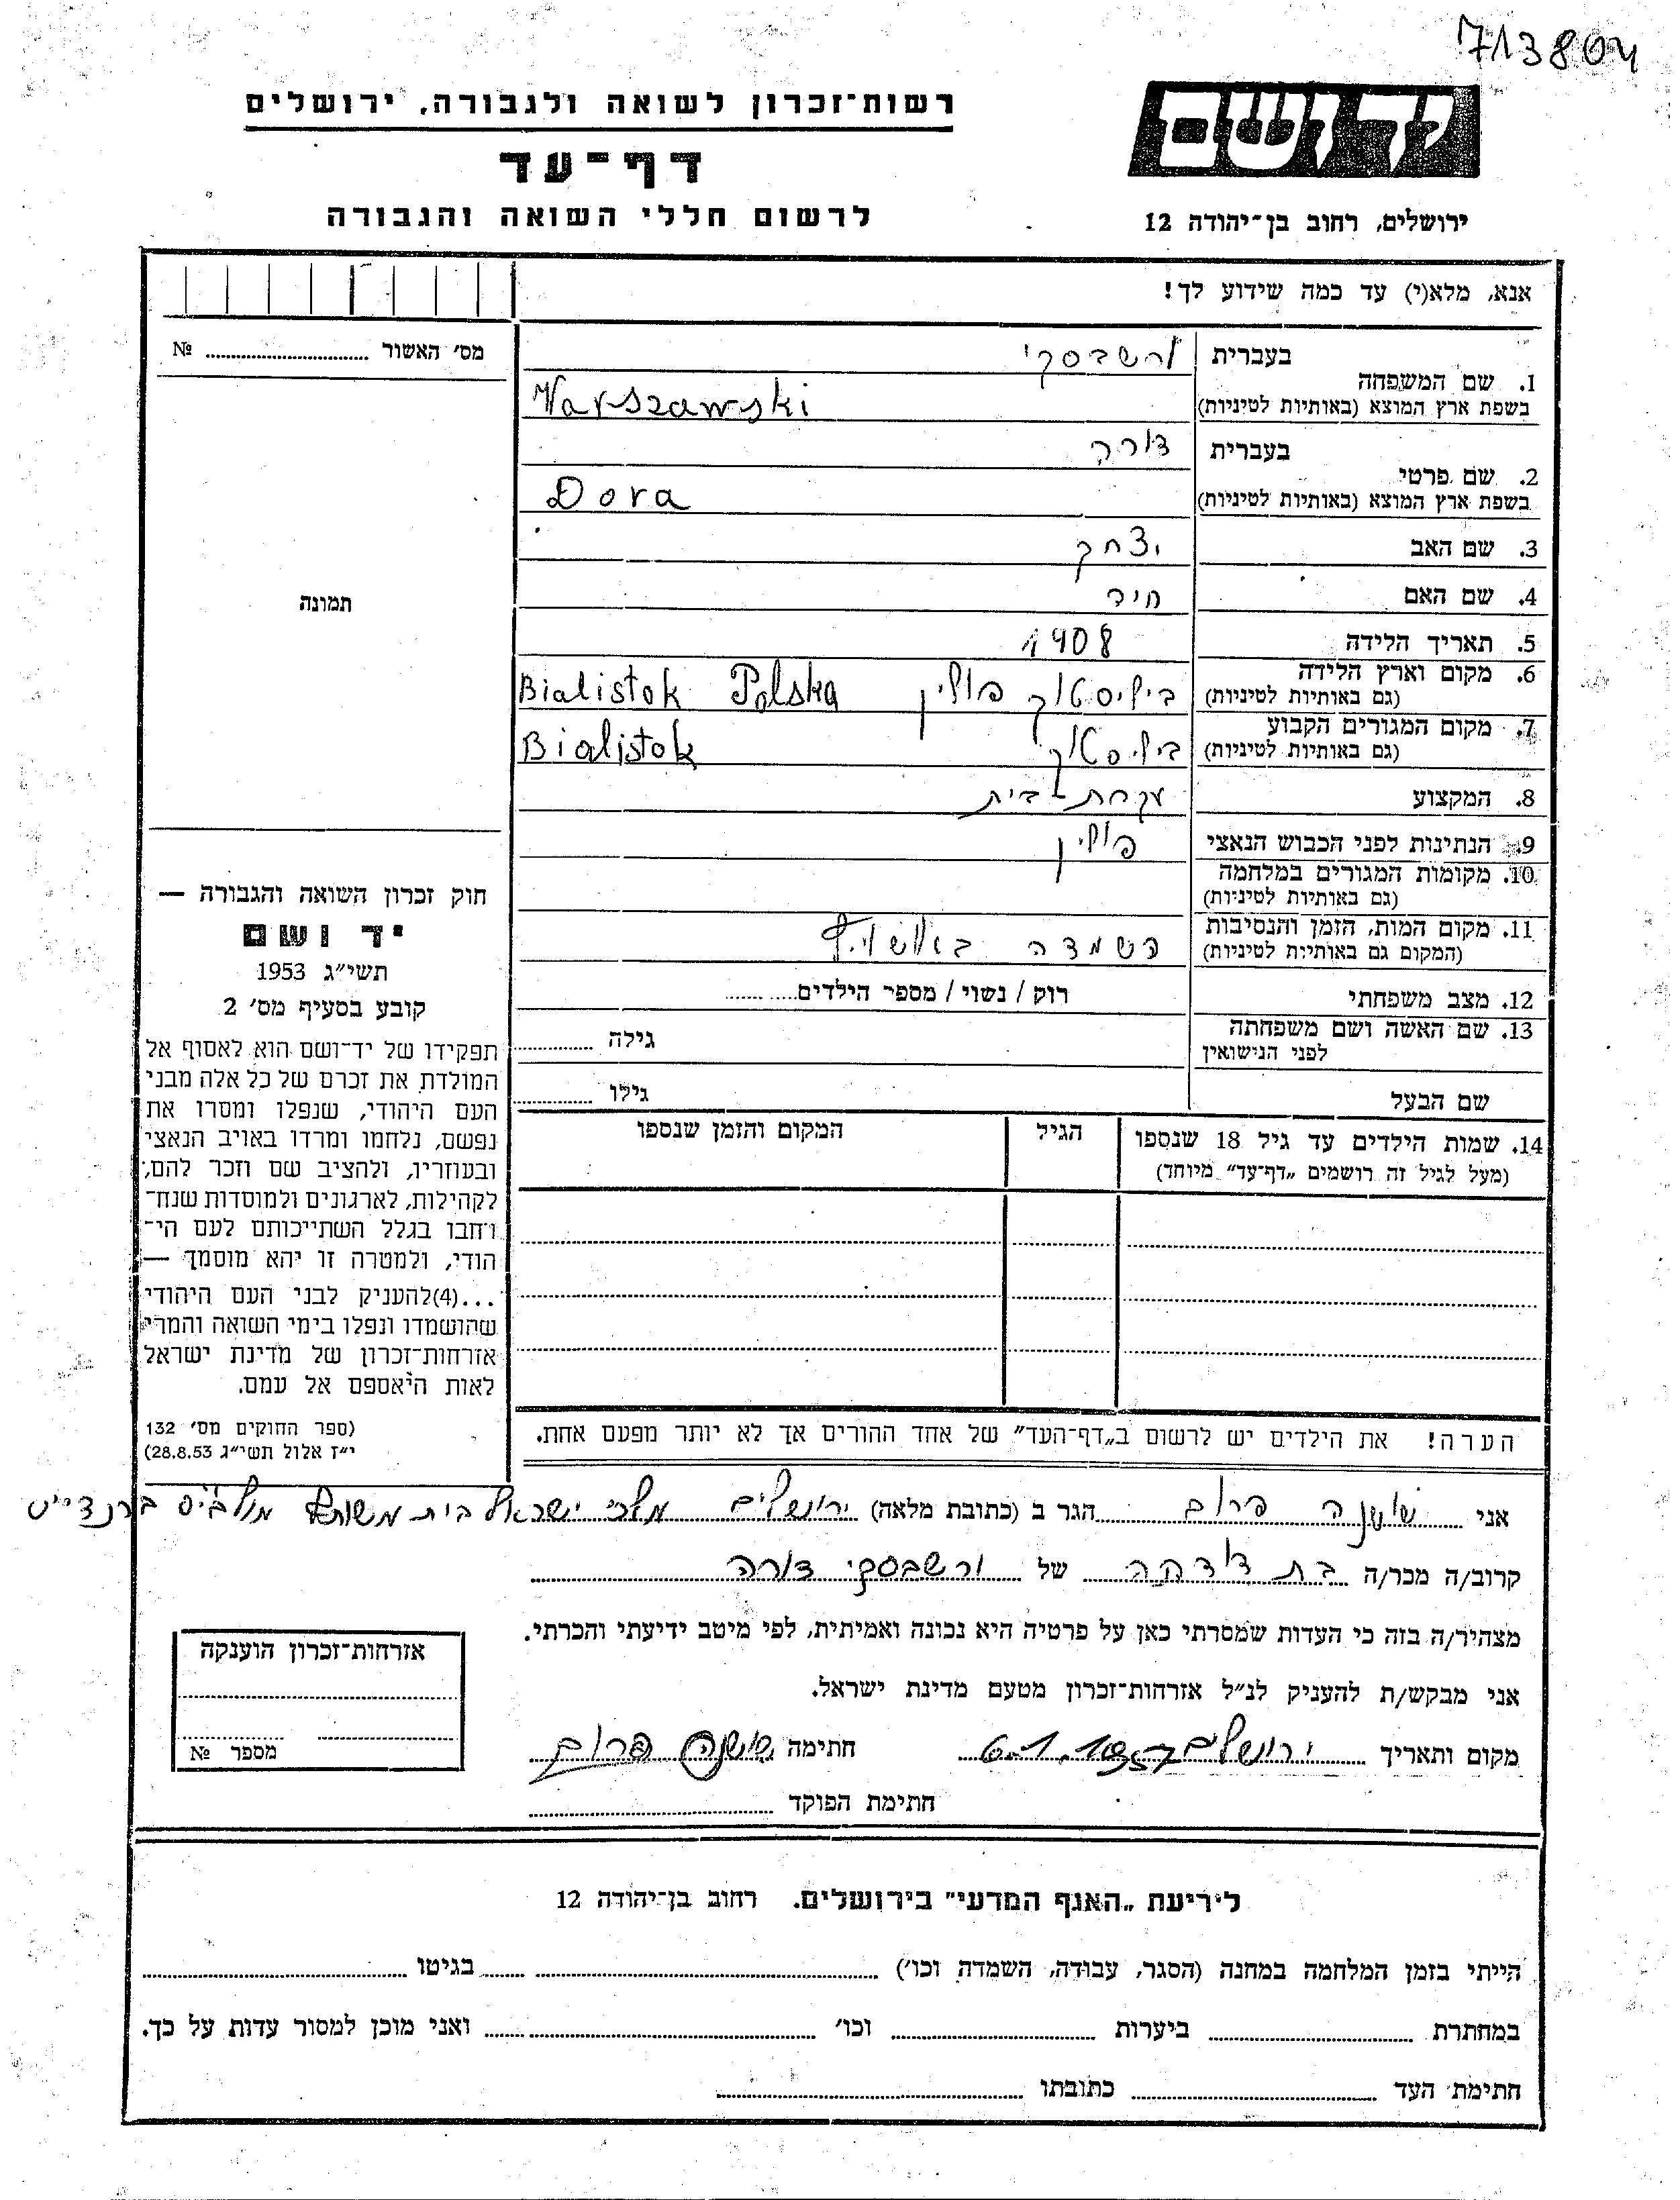 713804
יד ושם
רשות־זכרון לשואה ולגבורה, ירושלים
דף־עד
לרשום חללי השואה והגבורה
ירושלים, רחוב בן־יהודה 12
אנא, מלא(י) עד כמה שידוע לך!
מס׳ האשור .................... №
1. שם המשפחה
בעברית ורשבסקי
בשפת ארץ המוצא (באותיות לטיניות) Warszawski
2. שם פרטי
בעברית דורה
בשפת ארץ המוצא (באותיות לטיניות) Dora
3. שם האב יצחק
4. שם האם חיה
5. תאריך הלידה 1908
6. מקום וארץ הלידה
(גם באותיות לטיניות) ביליסטוק פולין Bialistok Polska
7. מקום המגורים הקבוע
(גם באותיות לטיניות) ביליסטוק Bialistok
8. המקצוע עקרת-בית
9. הנתינות לפני הכבוש הנאצי פולין
10. מקומות המגורים במלחמה
(גם באותיות לטיניות)
11. מקום המות, הזמן והנסיבות
(המקום גם באותיות לטיניות) השמדה באושויץ
12. מצב משפחתי רוק / נשוי / מספר הילדים..........
13. שם האשה ושם משפחתה
לפני הנישואין
גילה ............
שם הבעל גילו ............
14. שמות הילדים עד גיל 18 שנספו הגיל המקום והזמן שנספו
(מעל לגיל זה רושמים „דף־עד״ מיוחד)
הערה! את הילדים יש לרשום ב„דף־העד״ של אחד ההורים אך לא יותר מפעם אחת.
תמונה
חוק זכרון השואה והגבורה —
יד ושם
תשי״ג 1953
קובע בסעיף מס׳ 2
תפקידו של יד־ושם הוא לאסוף אל
המולדת את זכרם של כל אלה מבני
העם היהודי, שנפלו ומסרו את
נפשם, נלחמו ומרדו באויב הנאצי
ובעוזריו, ולהציב שם וזכר להם,
לקהילות, לארגונים ולמוסדות שנח־
רחבו בגלל השתייכותם לעם הי־
הודי, ולמטרה זו יהא מוסמך —
...(4)להעניק לבני העם היהודי
שהושמדו ונפלו בימי השואה והמרי
אזרחות־זכרון של מדינת ישראל
לאות היאספם אל עמם.
(ספר החוקים מס׳ 132
י״ז אלול תשי״ג 28.8.53)
אני שושנה פרום הגר ב (כתובת מלאה) ירושלים מלכי ישראל בית משותף
קרוב/ה מכר/ה בת דודה של ורשבסקי דורה
מצהיר/ה בזה כי העדות שמסרתי כאן על פרטיה היא נכונה ואמיתית, לפי מיטב ידיעתי והכרתי.
אני מבקש/ת להעניק לנ״ל אזרחות־זכרון מטעם מדינת ישראל.
מקום ותאריך ירושלים 6.1.1957 חתימה שושנה פרום
חתימת הפוקד
אזרחות־זכרון הוענקה
מספר №
לידיעת „האגף המדעי״ בירושלים. רחוב בן־יהודה 12
הייתי בזמן המלחמה במחנה (הסגר, עבודה, השמדה וכו׳) .................... בגיטו ....................
במחתרת .................... ביערות .................... וכו׳ .................... ואני מוכן למסור עדות על כך.
חתימת העד .................... כתובתו ....................